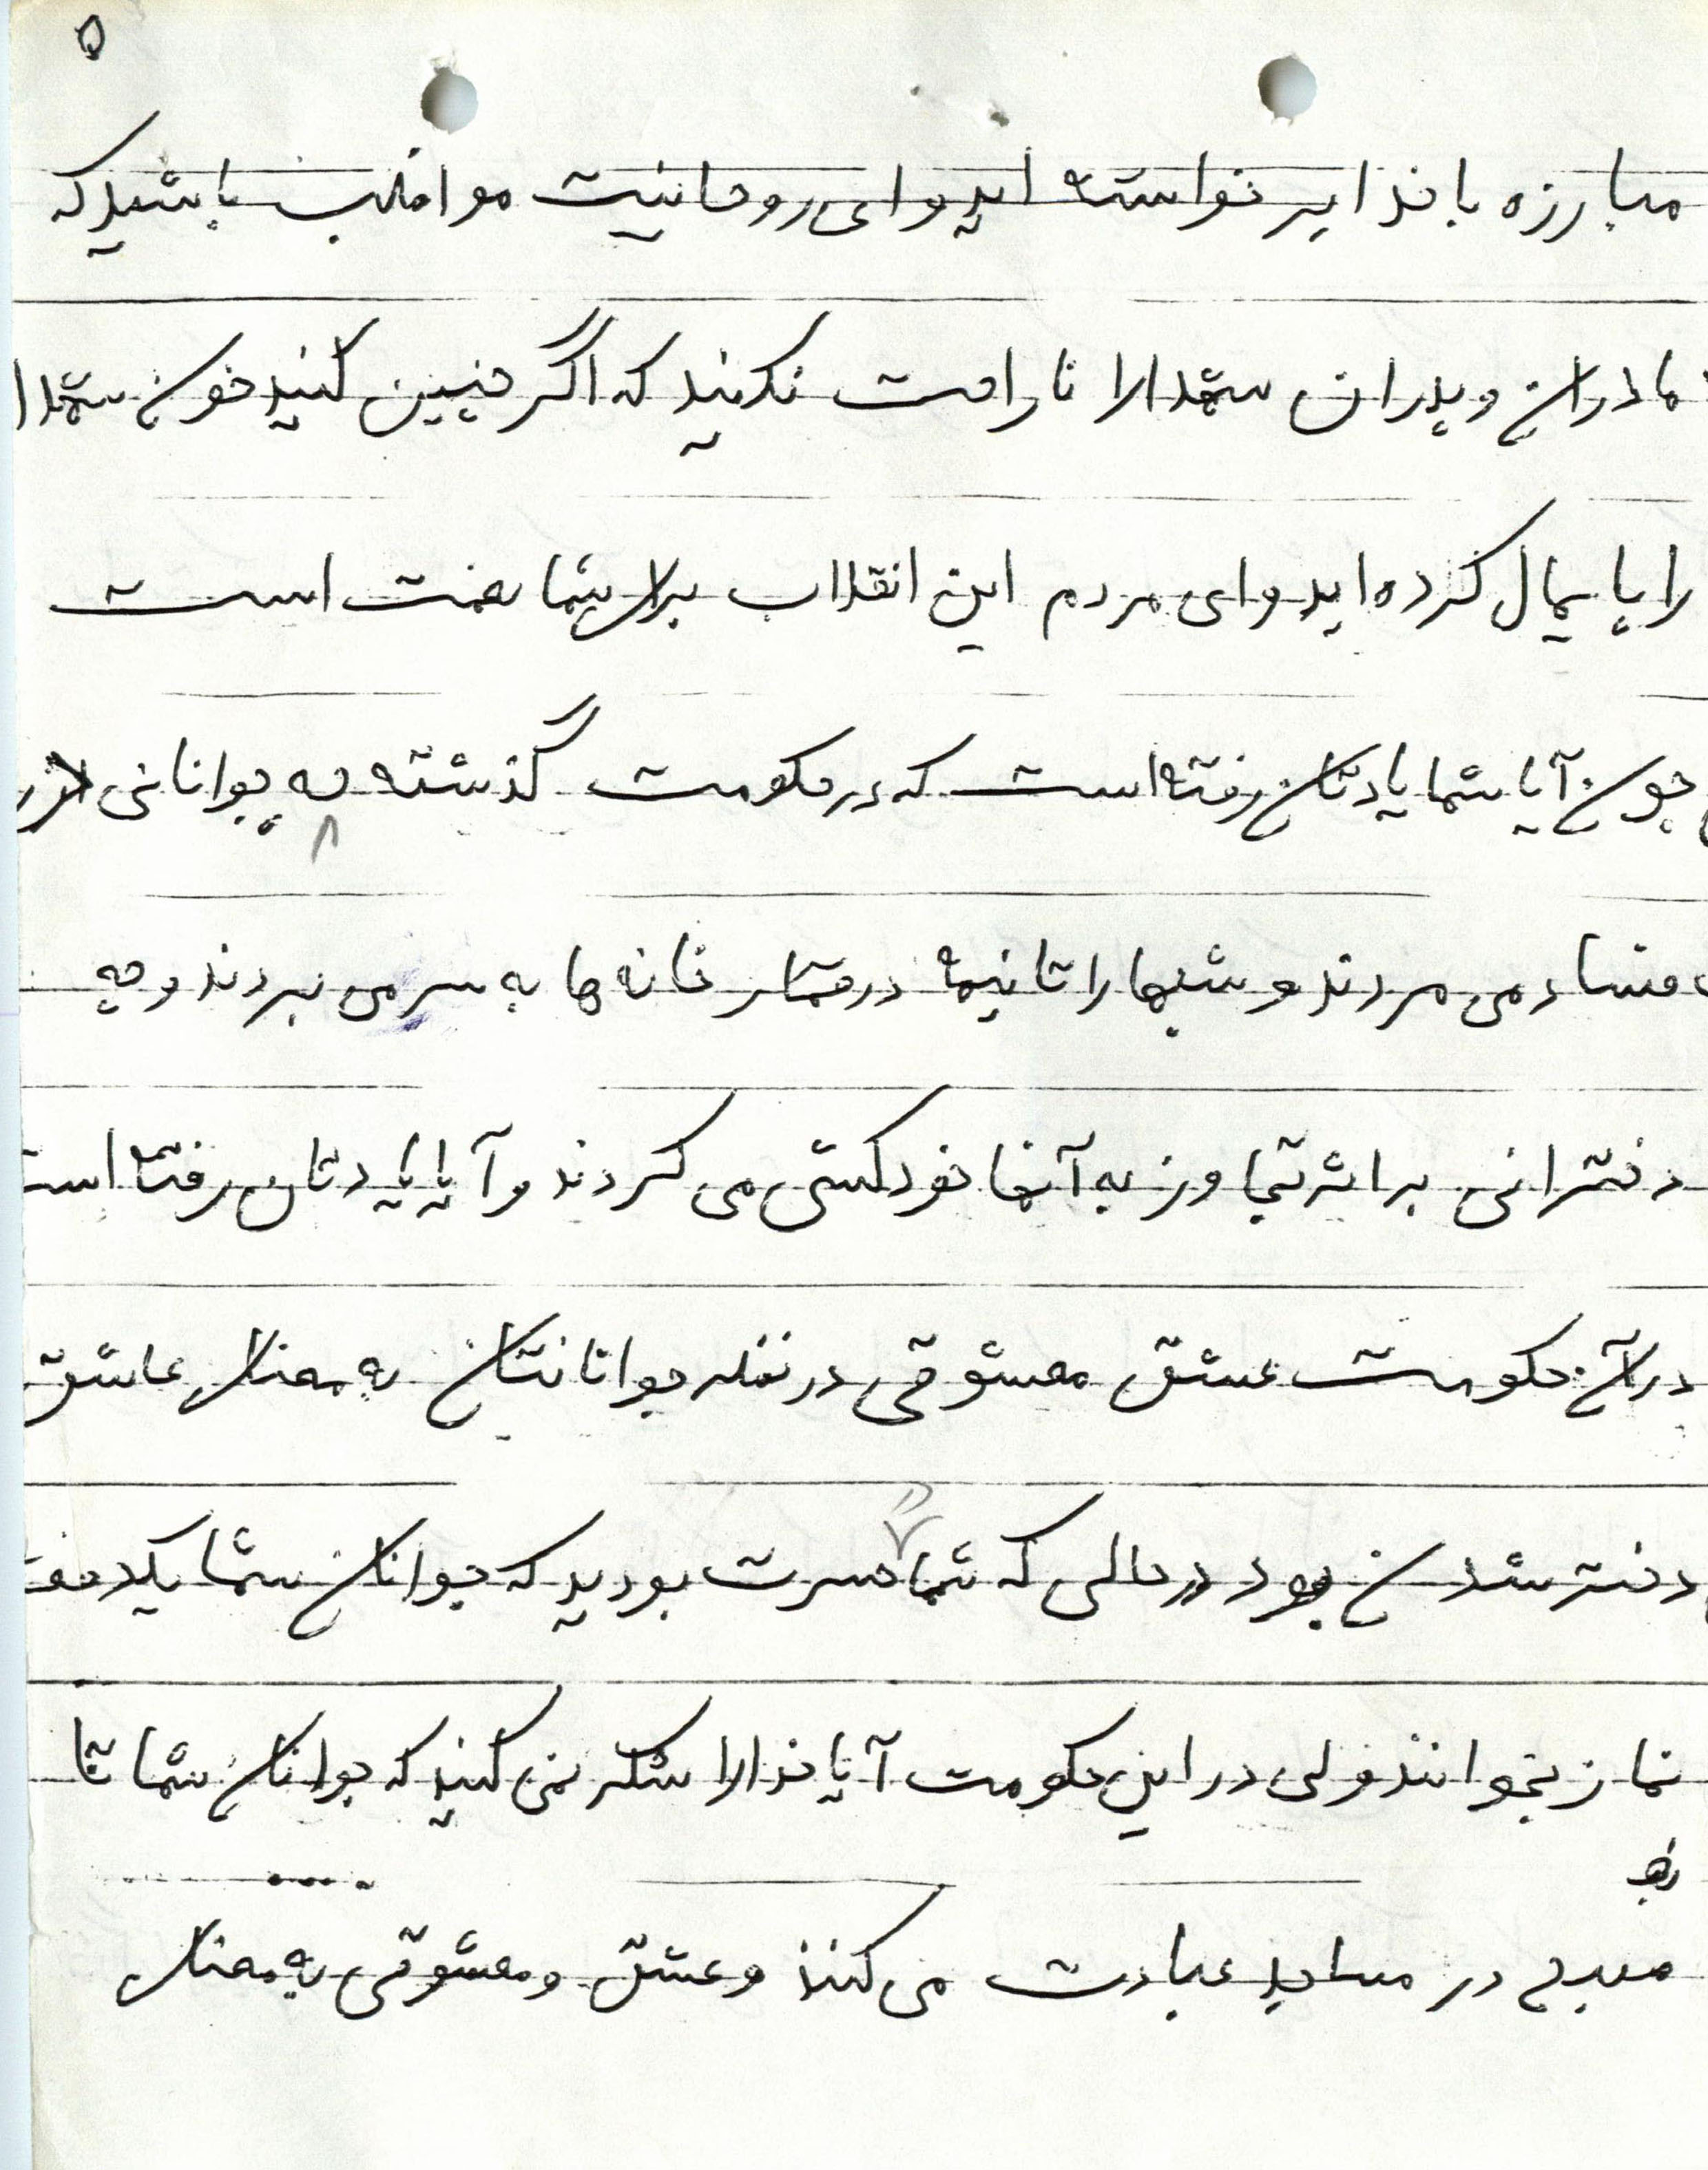 ۵
مبارزه با خدا برخواسته اید و ای روحانیت مواظب باشید که
مادران و پدران شهدا را ناراحت نکنید که اگر چنین کنید خون شهدا
را پایمال کرده اید و ای مردم این انقلاب برای شما نعمت است
چون آیا شما یادتان رفته است که در حکومت گذشته چه جوانانی در
فساد می مردند و شبها را تا نیمه در قمار خانه ها به سر می بردند و چه
دخترانی بر اثر تجاوز به آنها خودکشی می کردند و آیا یادتان رفته است
در آن حکومت عشق معشوقی در نظر جوانانتان به معنای عاشق
دختر شدن بود در حالی که شما حسرت بودید که جوانان شما یکدفعه
نماز بخوانند ولی در این حکومت آیا خدا را شکر نمی کنید که جوانان شما تا
صبح در مساجد عبادت می کنند و عشق و معشوقی به معنای